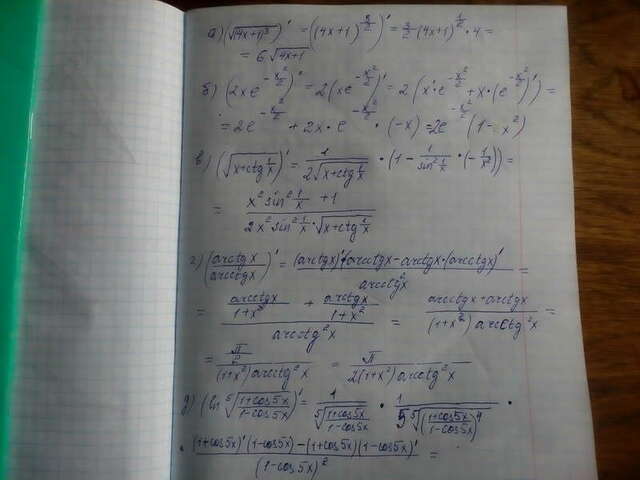 а) (√(4x+1)³)' = ((4x+1)^(3/2))' = 3/2 (4x+1)^(1/2) · 4 =
= 6√(4x+1)
б) (2xe^(-x²/2))' = 2(xe^(-x²/2))' = 2(x'·e^(-x²/2) + x·(e^(-x²/2))') =
= 2e^(-x²/2) + 2x·e^(-x²/2) · (-x) = 2e^(-x²/2) (1-x²)
в) (√(x+ctg 1/x))' = 1/(2√(x+ctg 1/x)) · (1 - 1/(sin² 1/x) · (-1/x²)) =
= (x² sin² 1/x + 1)/(2x² sin² 1/x · √(x+ctg 1/x))
г) (arctgx/arcctgx)' = ((arctgx)'·arcctgx - arctgx·(arcctgx)')/arcctg²x =
= (arcctgx/(1+x²) + arctgx/(1+x²))/arcctg²x = (arcctgx+arctgx)/((1+x²)arcctg²x) =
= (π/2)/((1+x²)arcctg²x) = π/(2(1+x²)arcctg²x)
д) (ln ⁵√((1+cos5x)/(1-cos5x)))' = 1/(⁵√((1+cos5x)/(1-cos5x))) · 1/(5 ⁵√(((1+cos5x)/(1-cos5x))⁴)) ·
· ((1+cos5x)'(1-cos5x)-(1+cos5x)(1-cos5x)')/((1-cos5x)²) =